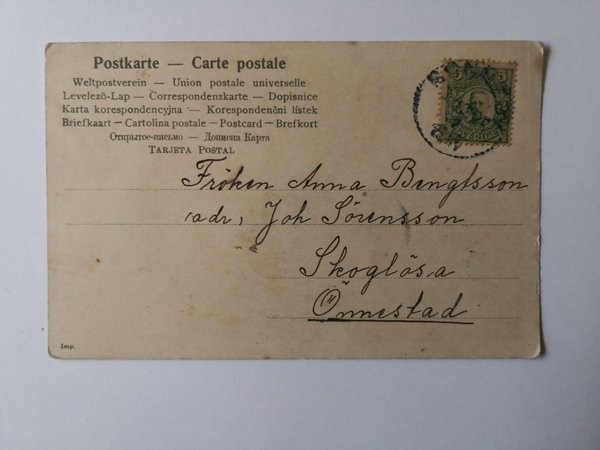 Postkarte — Carte postale
Weltpostverein — Union postale universelle
Levelezö-Lap — Čorrespondenzkarte — Dopisnice
Karta korespondencyjna — Korespondenčni listek
Briefkaart — Cartolina postale — Postcard — Brefkort
Открытое-письмо — Дописна Карта
TARJETA POSTAL
5
SVERIGE
Fröken Anna Bengtsson
adr, Joh Sörensson
Skoglösa
Önnestad.
Imp.